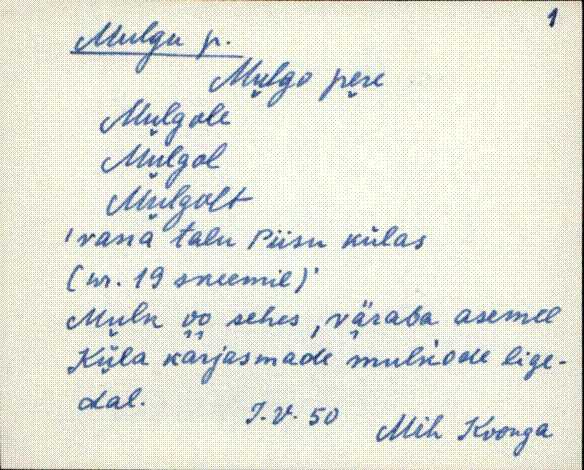 1
Mulgu p.
Mulgo pere
Mulgole
Mulgol
Mulgolt
'vana talu Piisu külas
(nr. 19 skeemil)'
Mulk oo sehes, väraba asemel
Küla karjasmade mulkode lige-
dal.
J.V. 50 Mih Koonga